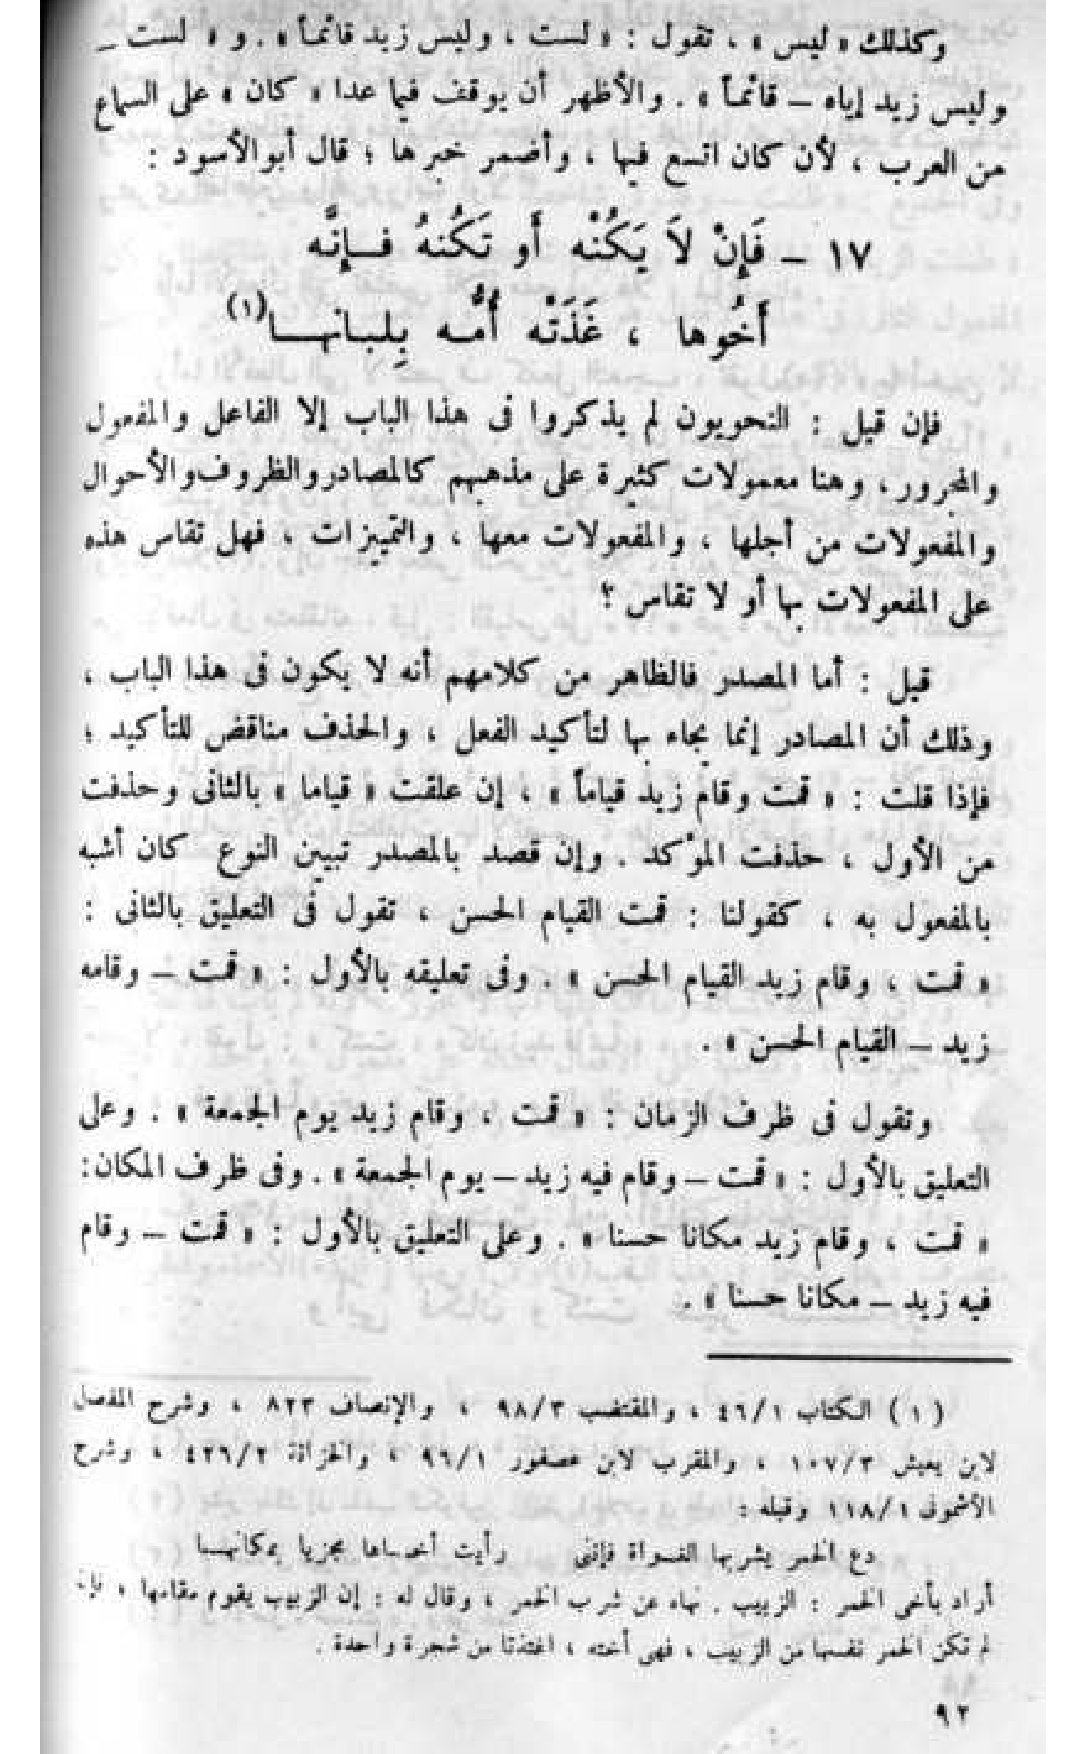 وكذلك « ليس » ، تقول : « لست ، وليس زيد قائماً » . و « لست –
وليس زيد إياه – قائماً » . والأظهر أن يوقف فيما عدا « كان » على السماع
من العرب ، لأن كان اتسع فيها ، وأضمر خبرها ؛ قال أبو الأسود :
١٧ – فَإِنْ لاَ يَكُنْه أَو تَكُنهُ فــإِنَّه
أَخُوها ، غَذَتْه أُمُّه بِلبانهــا (١)
فإن قيل : النحويون لم يذكروا فى هذا الباب إلا الفاعل والمفعول
والمجرور ، وهنا معمولات كثيرة على مذهبهم كالمصادر والظروف والأحوال
والمفعولات من أجلها ، والمفعولات معها ، والتمييزات ، فهل تقاس هذه
على المفعولات بها أو لا تقاس ؟
قيل : أما المصدر فالظاهر من كلامهم أنه لا يكون فى هذا الباب ،
وذلك أن المصادر إنما يجاء بها لتأكيد الفعل ، والحذف مناقض للتأكيد ؛
فإذا قلت : « قمت وقام زيد قياماً » ، إن علقت « قياما » بالثانى وحذفت
من الأول ، حذفت المؤكد . وإن قصد بالمصدر تبيين النوع كان أشبه
بالمفعول به ، كقولنا : قمت القيام الحسن ، تقول فى التعليق بالثانى :
« قمت ، وقام زيد القيام الحسن » . وفى تعليقه بالأول : « قمت – وقامه
زيد – القيام الحسن » .
وتقول فى ظرف الزمان : « قمت ، وقام زيد يوم الجمعة » . وعلى
التعليق بالأول : « قمت – وقام فيه زيد – يوم الجمعة » . وفى ظرف المكان :
« قمت ، وقام زيد مكانا حسنا » . وعلى التعليق بالأول : « قمت – وقام
فيه زيد – مكانا حسنا » .
( ١ ) الكتاب ٤٦/١ ، والمقتضب ٩٨/٣ ، والإنصاف ٨٢٣ ، وشرح المفصل
لابن يعيش ١٠٧/٣ ، والمقرب لابن عصفور ٩٦/١ ، والخزانة ٤٢٦/٢ ، وشرح
الأشمونى ١١٨/١ وقبله :
دع الخمر يشربها الغــواة فإننى رأيت أخــاها مجزيا بمكانهــا
أراد بأخى الخمر : الزبيب . نهاه عن شرب الخمر ، وقال له : إن الزبيب يقوم مقامها ، فإن
لم تكن الخمر نفسها من الزبيب ، فهى أخته ، اغتذتا من شجرة واحدة .
٩٢